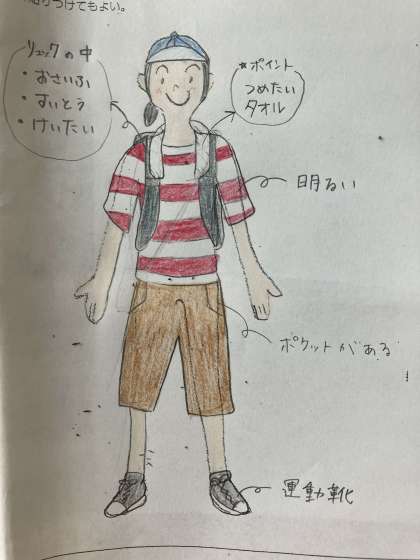 貼りつけてもよい。
リュックの中
・おさいふ
・すいとう
・けいたい
★ポイント
つめたい
タオル
明るい
ポケットがある
運動靴